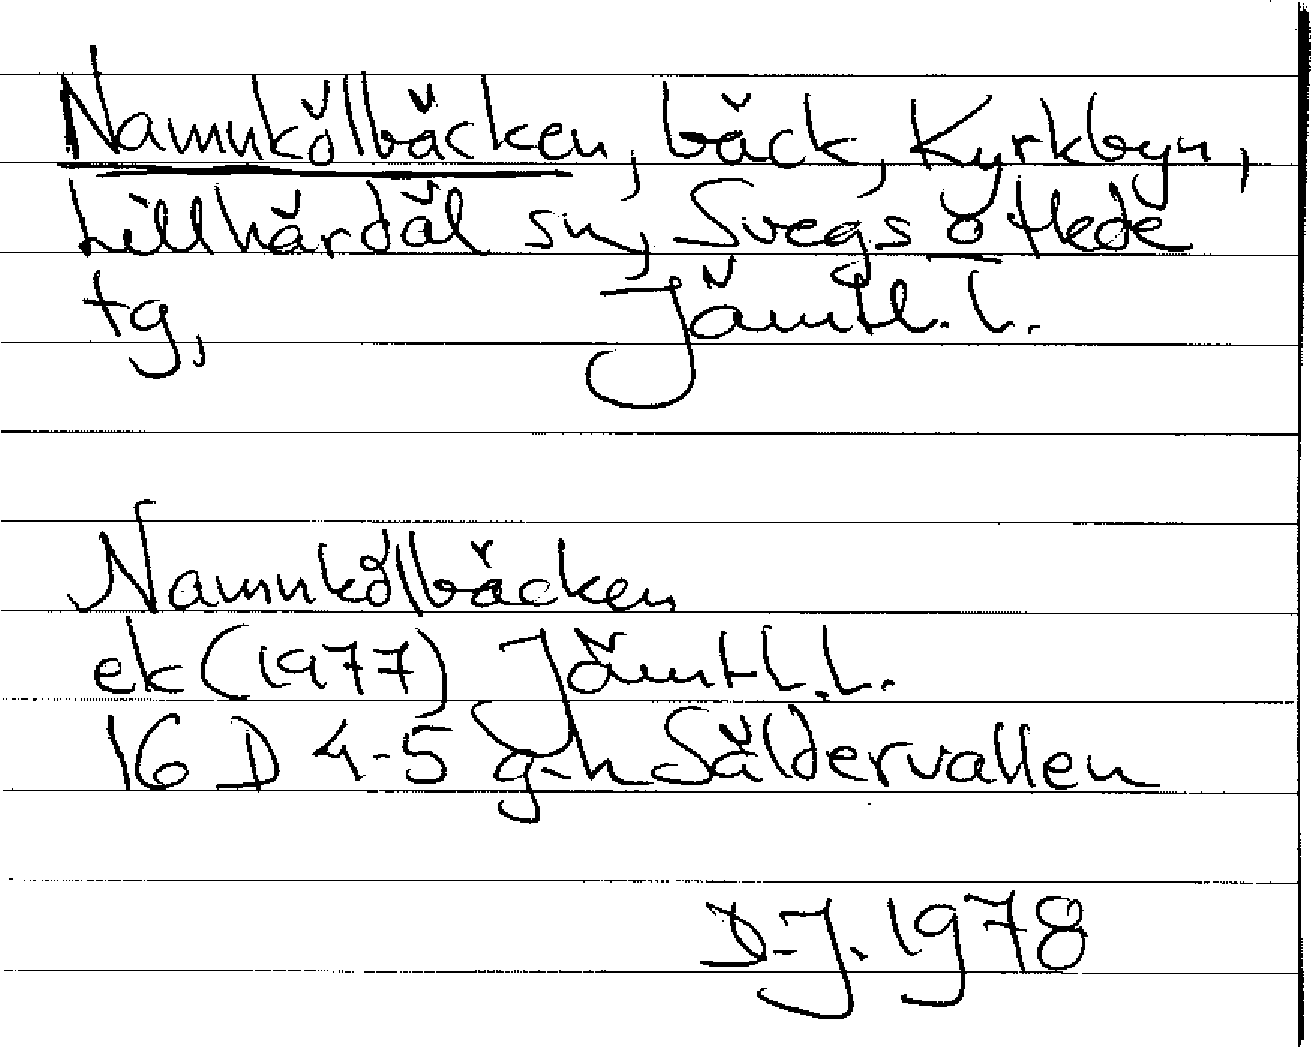 Namnkölbäcken, bäck, Kyrkbyn,
Lillhärdal sn, Svegs o Hede
tg, Jämtl. l.
Namnkölbäcken
ek (1977) Jämtl. l.
16 D 4-5 g-h Säldervallen
D.J. 1978